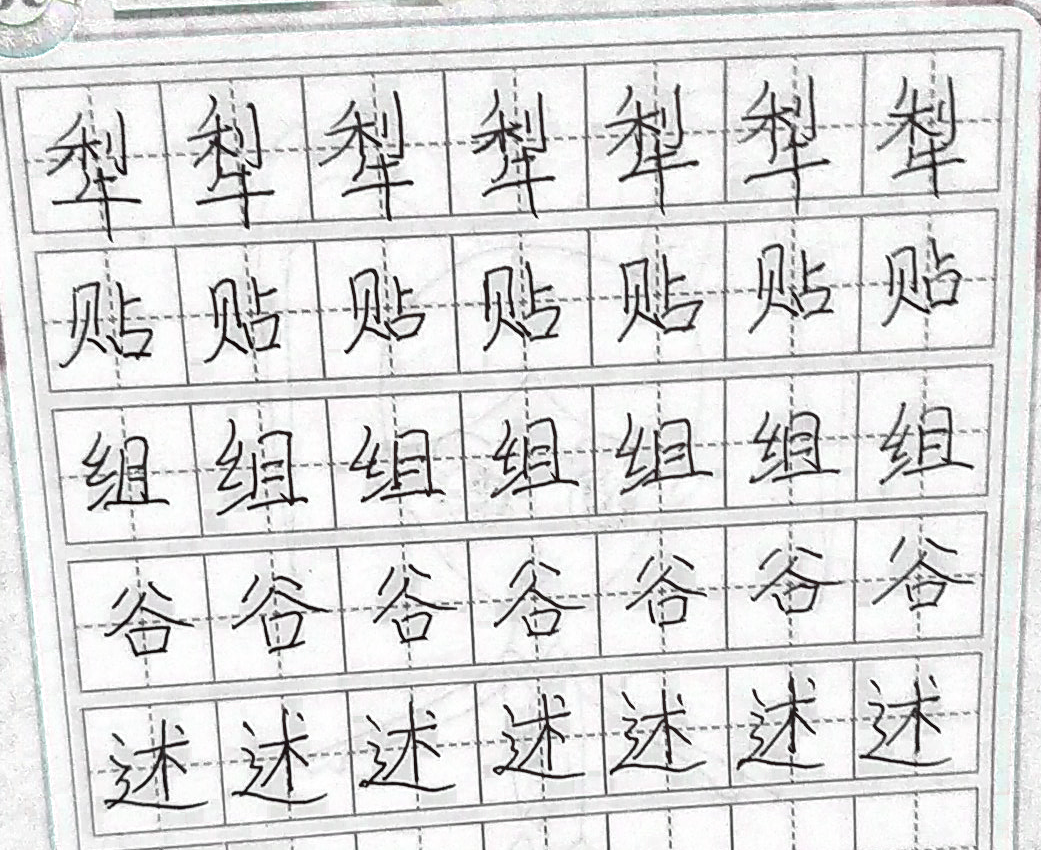 犁犁犁犁犁犁犁
贴贴贴贴贴贴贴
组组组组组组组
谷谷谷谷谷谷谷
述述述述述述述